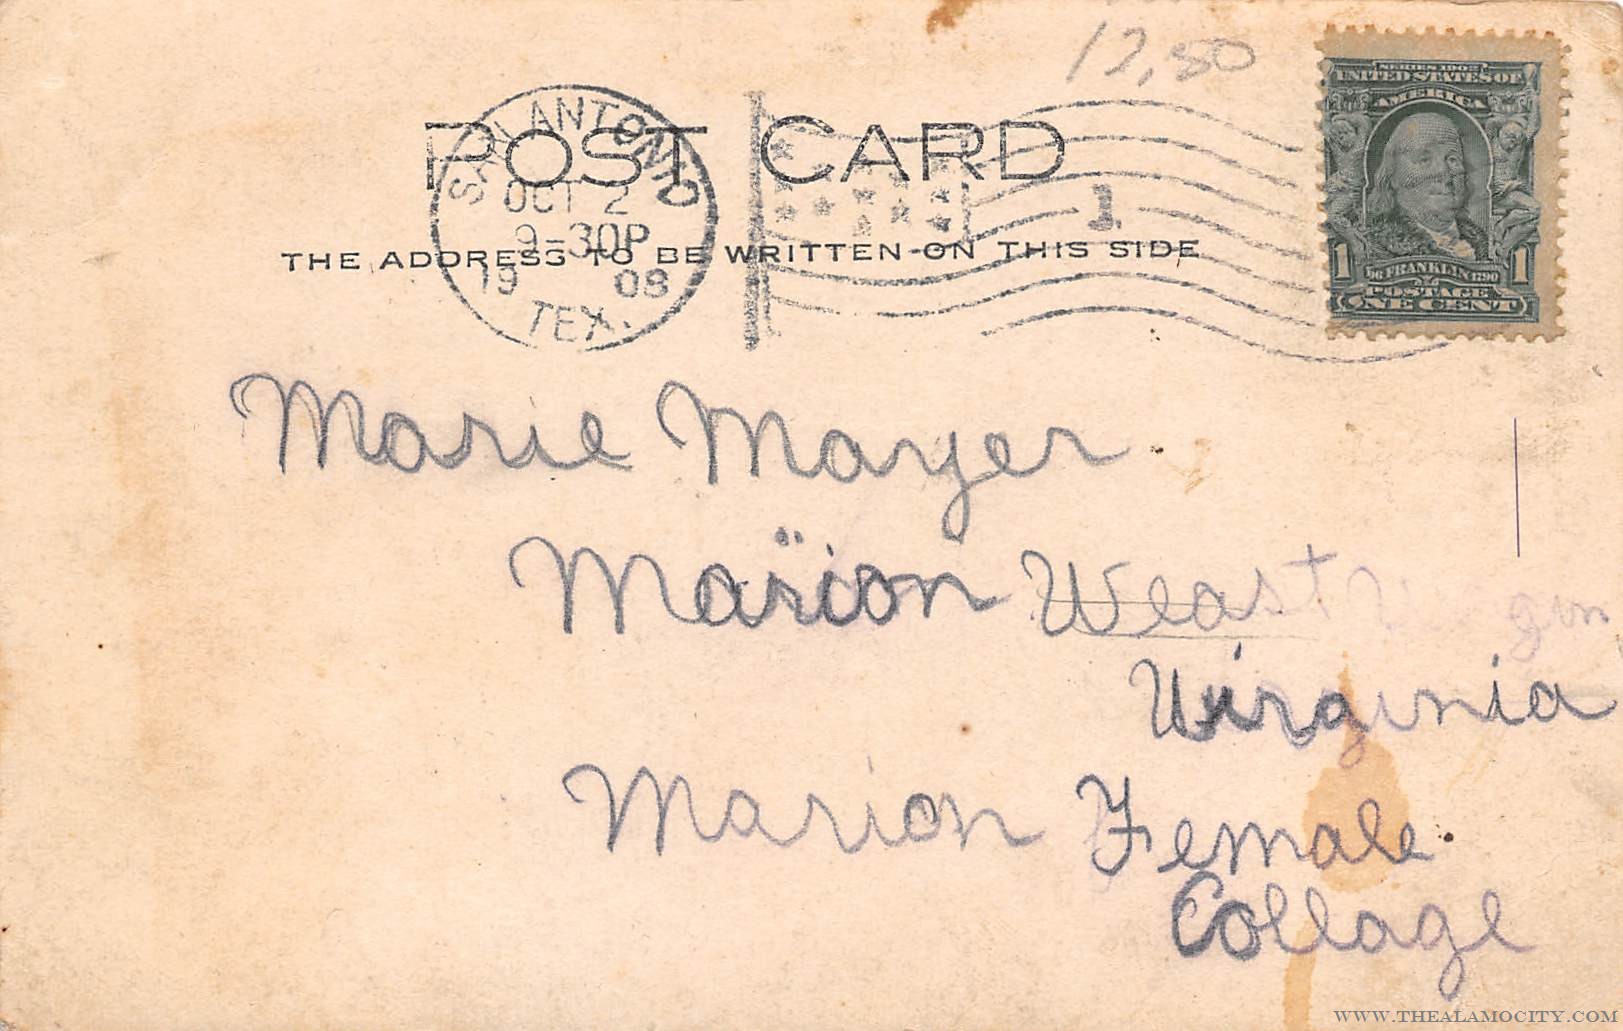 12,50
SERIES 1902
UNITED STATES OF
AMERICA
POST CARD
SAN ANTONIO
OCT 2
9-30P
19 08
TEX.
1
THE ADDRESS TO BE WRITTEN ON THIS SIDE
1 FRANKLIN 1790 1
POSTAGE
ONE CENT
Marie Mayer
Marion Weast
Virginia
Marion Female
Collage
WWW.THEALAMOCITY.COM